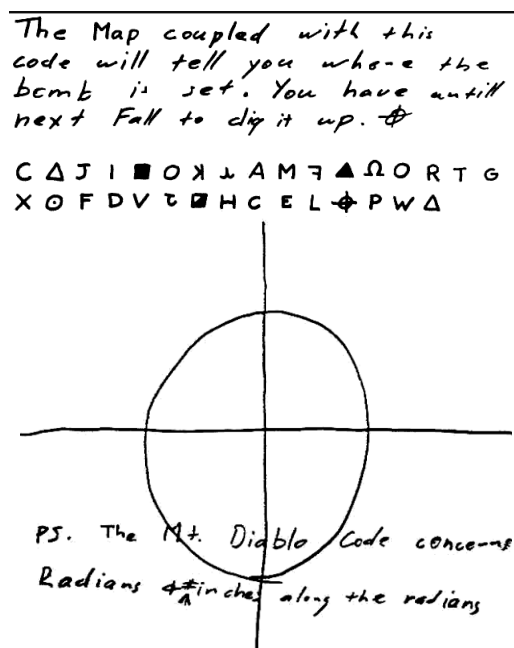 The Map coupled with this
code will tell you where the
bomb is set. You have untill
next Fall to dig it up. ⌖
C Δ J I ■ O ꓘ ⅄ A M ꟻ ▲ Ω O R T G
X ⊙ F D V Ʇ ◪ H C E L ⌖ P W Δ
PS. The Mt. Diablo Code concerns
Radians & # inches along the radians